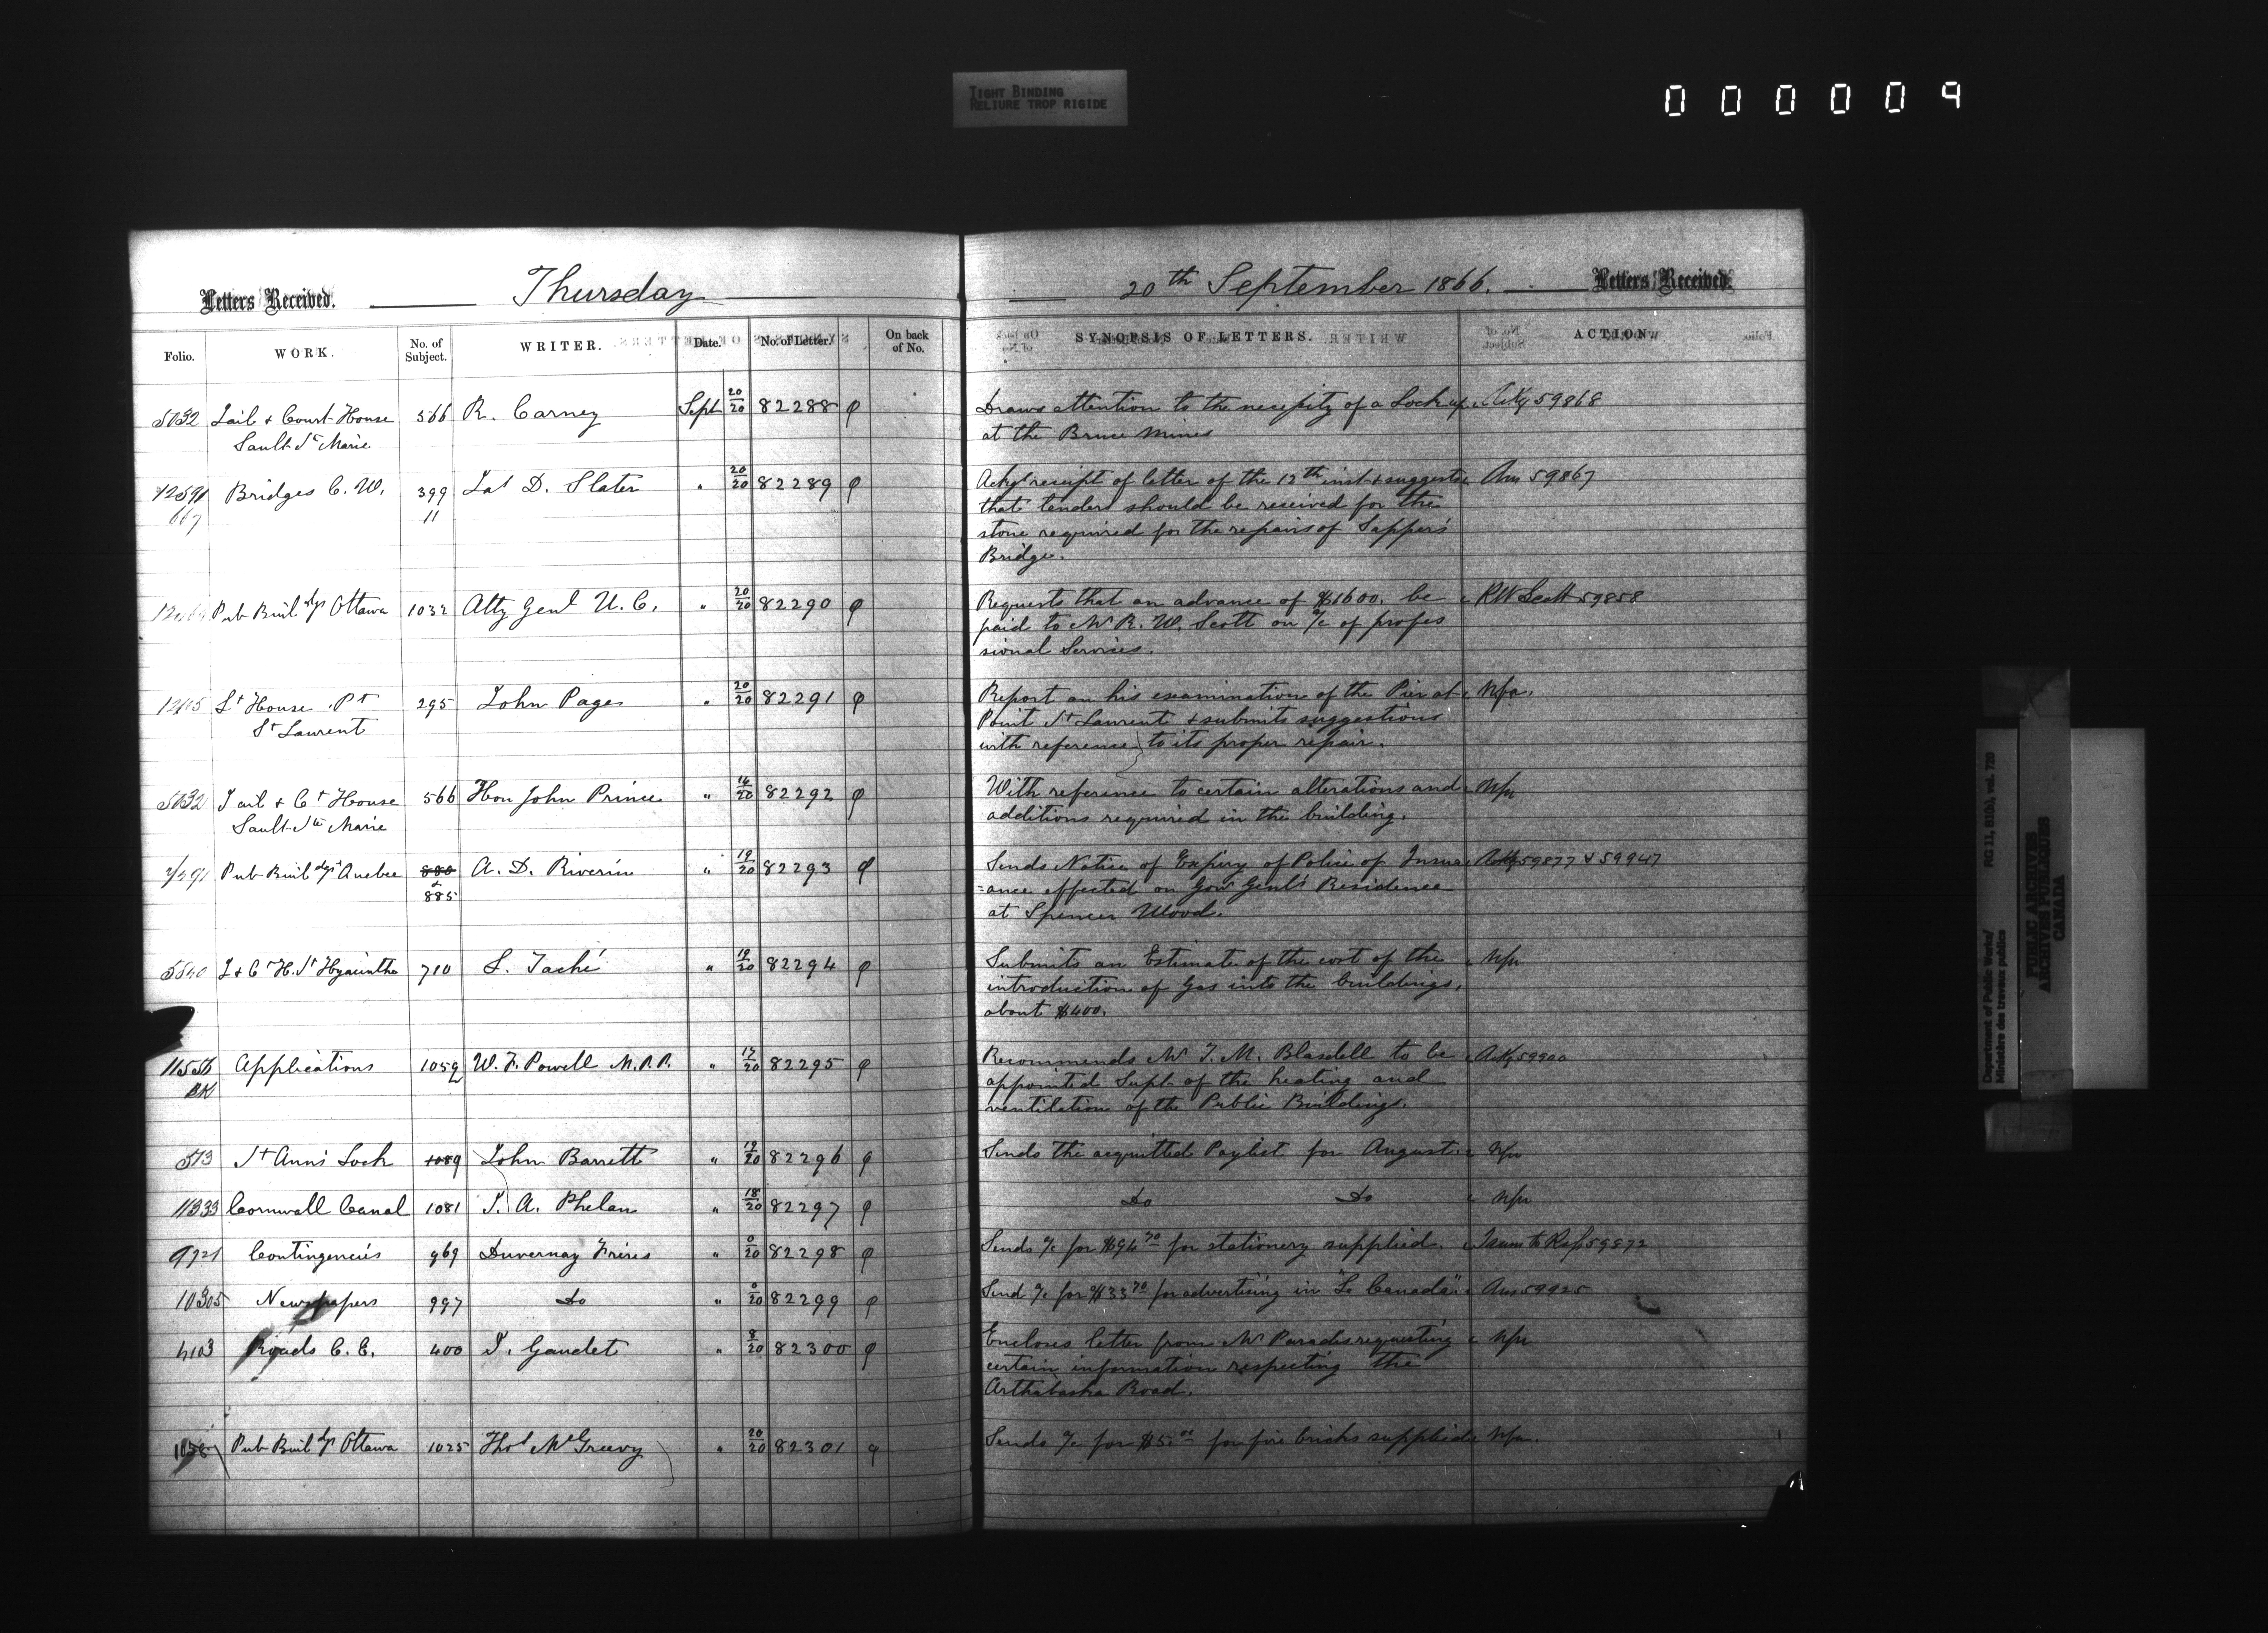 TIGHT BINDING
RELIURE TROP RIGIDE
000009
Letters Received. Thursday
20th September 1866. Letters Received.
Folio. WORK. No. of Subject. WRITER. Date. No. of Letter. On back of No. SYNOPSIS OF LETTERS. ACTION.
5032 Jail & Court House 566 R. Carney Sept 20/20 82288 Draws attention to the necessity of a Lock up Ackg 59868
Sault Ste Marie at the Bruce Mines
Bridges C. W. 399 Jas D. Slater " 20/20 82289 Ackgs receipt of letter of the 12th inst & suggests Ans 59867
667 11 that tenders should be received for the
stone required for the repairs of Sapper's
Bridge.
Pub Buildgs Ottawa 1032 Atty Genl U. C. " 20/20 82290 Requests that an advance of $1600. be RW Scott 59858
paid to Mr R. W. Scott on a/c of profes
sional Services.
Lt House Pt 295 John Page " 20/20 82291 Report on his examination of the Pier at Nfa.
St Laurent Point St Laurent & submits suggestions
with reference to its proper repair.
5032 Jail & Ct House 566 Hon John Prince " 14/20 82292 With reference to certain alterations and Nfa
Sault Ste Marie additions required in the building.
Pub Buildgs Quebec 880 A. D. Riverin " 19/20 82293 Sends Notice of Expiry of Police of Insur Ackg 59877 & 59947
& 885 =ance effected on Govr Genl's Residence
at Spencer Wood.
5540 J & Ct H. St Hyacinthe 710 L. Taché " 19/20 82294 Submits an Estimate of the cost of the Nfa
introduction of Gas into the buildings,
about $400.
Applications 1059 W. F. Powell M.P.P. " 17/20 82295 Recommends Mr J. M. Blasdell to be Ackg 59900
BK appointed Supt of the heating and
ventilation of the Public Buildings.
513 St Ann's Lock 1089 John Barrett " 19/20 82296 Sends the acquitted Paylist for August. Nfa
11333 Cornwall Canal 1081 J. A. Phelan " 18/20 82297 Do Do Nfa
9721 Contingencies 969 Duvernay Frères " 0/20 82298 Sends a/c for $94 70 for stationery supplied. 59872
10305 Newspapers 997 Do " 0/20 82299 Send a/c for $33 70 for advertising in "Le Canada". Ans 59925
4103 Roads C. E. 400 J. Gaudet " 8/20 82300 Encloses letter from Mr Paradis requesting Nfa
certain information respecting the
Arthabaska Road.
Pub Buildgs Ottawa 1025 Thos McGreevy " 20/20 82301 Sends a/c for $5.00 for fire bricks supplied Nfa.
Department of Public Works/
Ministère des travaux publics
RG 11, B1(b), vol. 720
PUBLIC ARCHIVES
ARCHIVES PUBLIQUES
CANADA